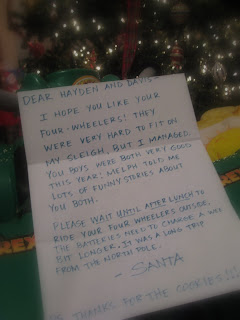 DEAR HAYDEN AND DAVIS-
I HOPE YOU LIKE YOUR
FOUR-WHEELERS! THEY
WERE VERY HARD TO FIT ON
MY SLEIGH, BUT I MANAGED.
YOU BOYS WERE BOTH VERY GOOD
THIS YEAR! MELPH TOLD ME
LOTS OF FUNNY STORIES ABOUT
YOU BOTH.
PLEASE WAIT UNTIL AFTER LUNCH TO
RIDE YOUR FOUR WHEELERS OUTSIDE.
THE BATTERIES NEED TO CHARGE A WEE
BIT LONGER. IT WAS A LONG TRIP
FROM THE NORTH POLE.
- SANTA
PS. THANKS FOR THE COOKIES!!!